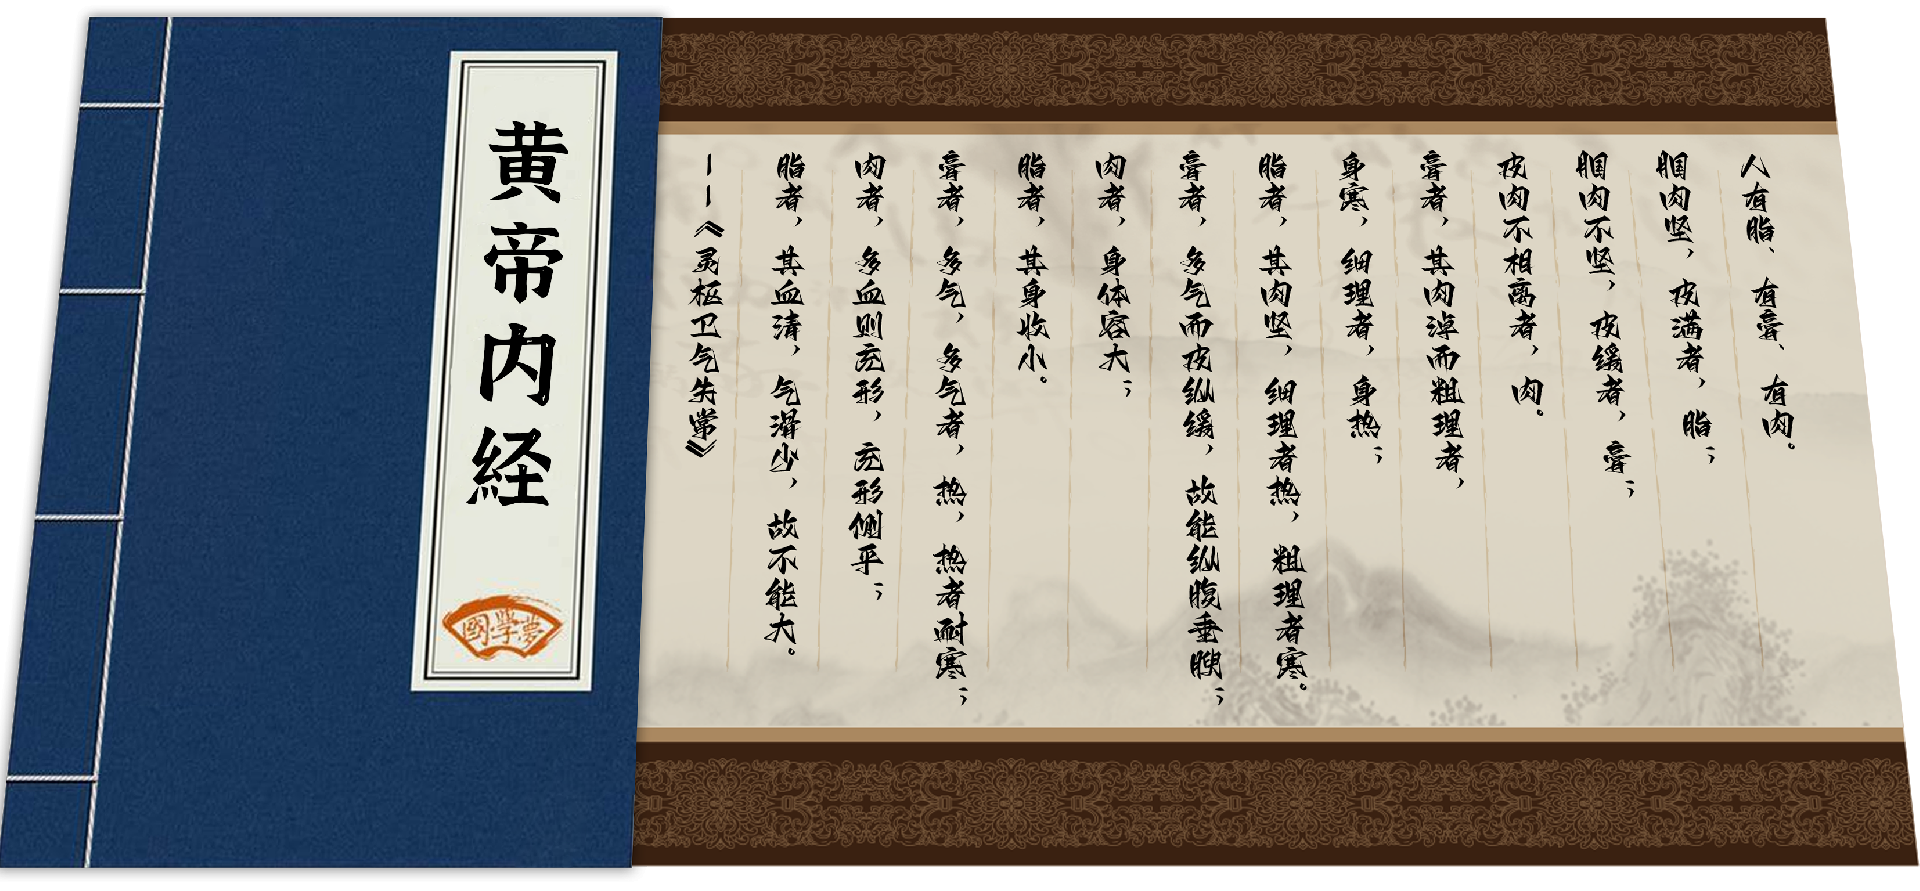 黄帝内経
國學夢
人有脂、有膏、有肉。
腘肉坚，皮满者，脂；
腘肉不坚，皮缓者，膏；
皮肉不相离者，肉。
膏者，其肉淖而粗理者，
身寒，细理者，身热；
脂者，其肉坚，细理者热，粗理者寒。
膏者，多气而皮纵缓，故能纵腹垂腴；
肉者，身体容大；
脂者，其身收小。
膏者，多气，多气者，热，热者耐寒；
肉者，多血则充形，充形侧平；
脂者，其血清，气滑少，故不能大。
——《灵枢卫气失常》